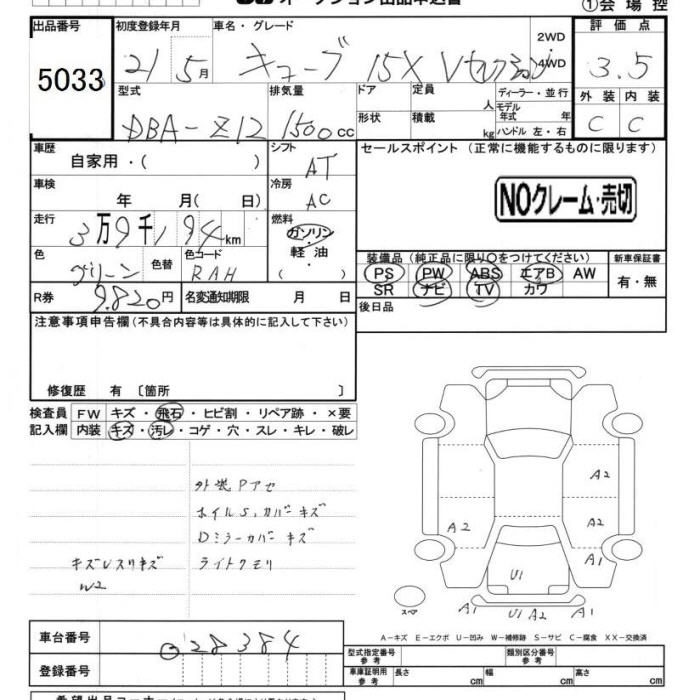 オークション出品申込書
①会場控
出品番号
5033
初度登録年月
21 5月
車名・グレード
キューブ 15X Vセレクション
2WD
4WD
評価点
3.5
型式
DBA-Z12
排気量
1500cc
ドア
形状
定員
人
積載
kg
ディーラー・並行
モデル年式
年
ハンドル 左・右
外装
内装
C
C
車歴
自家用・( )
シフト
AT
セールスポイント (正常に機能するものに限ります)
車検
年 月( 日)
冷房
AC
NOクレーム・売切
走行
3万9千194km
燃料
ガソリン
軽油
( )
色
グリーン
色替
色コード
RAH
装備品 (純正品に限り○をつけてください)
PS PW ABS エアB AW
SR ナビ TV カワ
新車保証書
有・無
R券
9.820円
名変通知期限
月 日
後日品
注意事項申告欄 (不具合内容等は具体的に記入して下さい)
修復歴 有 〔箇所 〕
検査員
記入欄
FW キズ・飛石・ヒビ割・リペア跡・×要
内装 キズ・汚レ・コゲ・穴・スレ・キレ・破レ
外装Pアセ
ホイルS,カバーキズ
Dミラーカバーキズ
ライトクモリ
キズUスリキズ
W2
A2
A2
A2
A1
U1
A1
U1 A2
A1
スペア
A−キズ E−エクボ U−凹み W−補修跡 S−サビ C−腐食 XX−交換済
車台番号
028384
登録番号
型式指定番号
参考
類別区分番号
参考
車庫証明用
参考
長さ
cm
幅
cm
高さ
cm